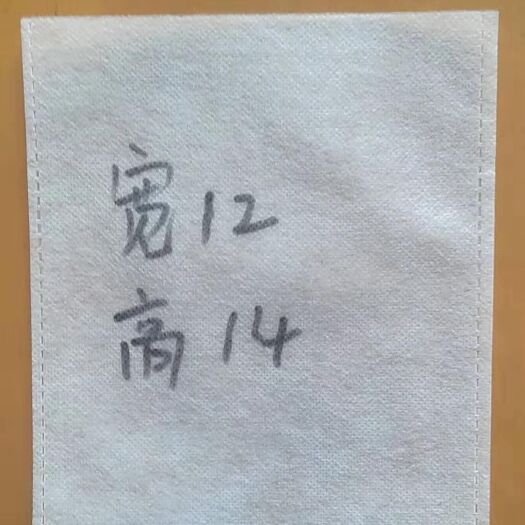 宽12
高14